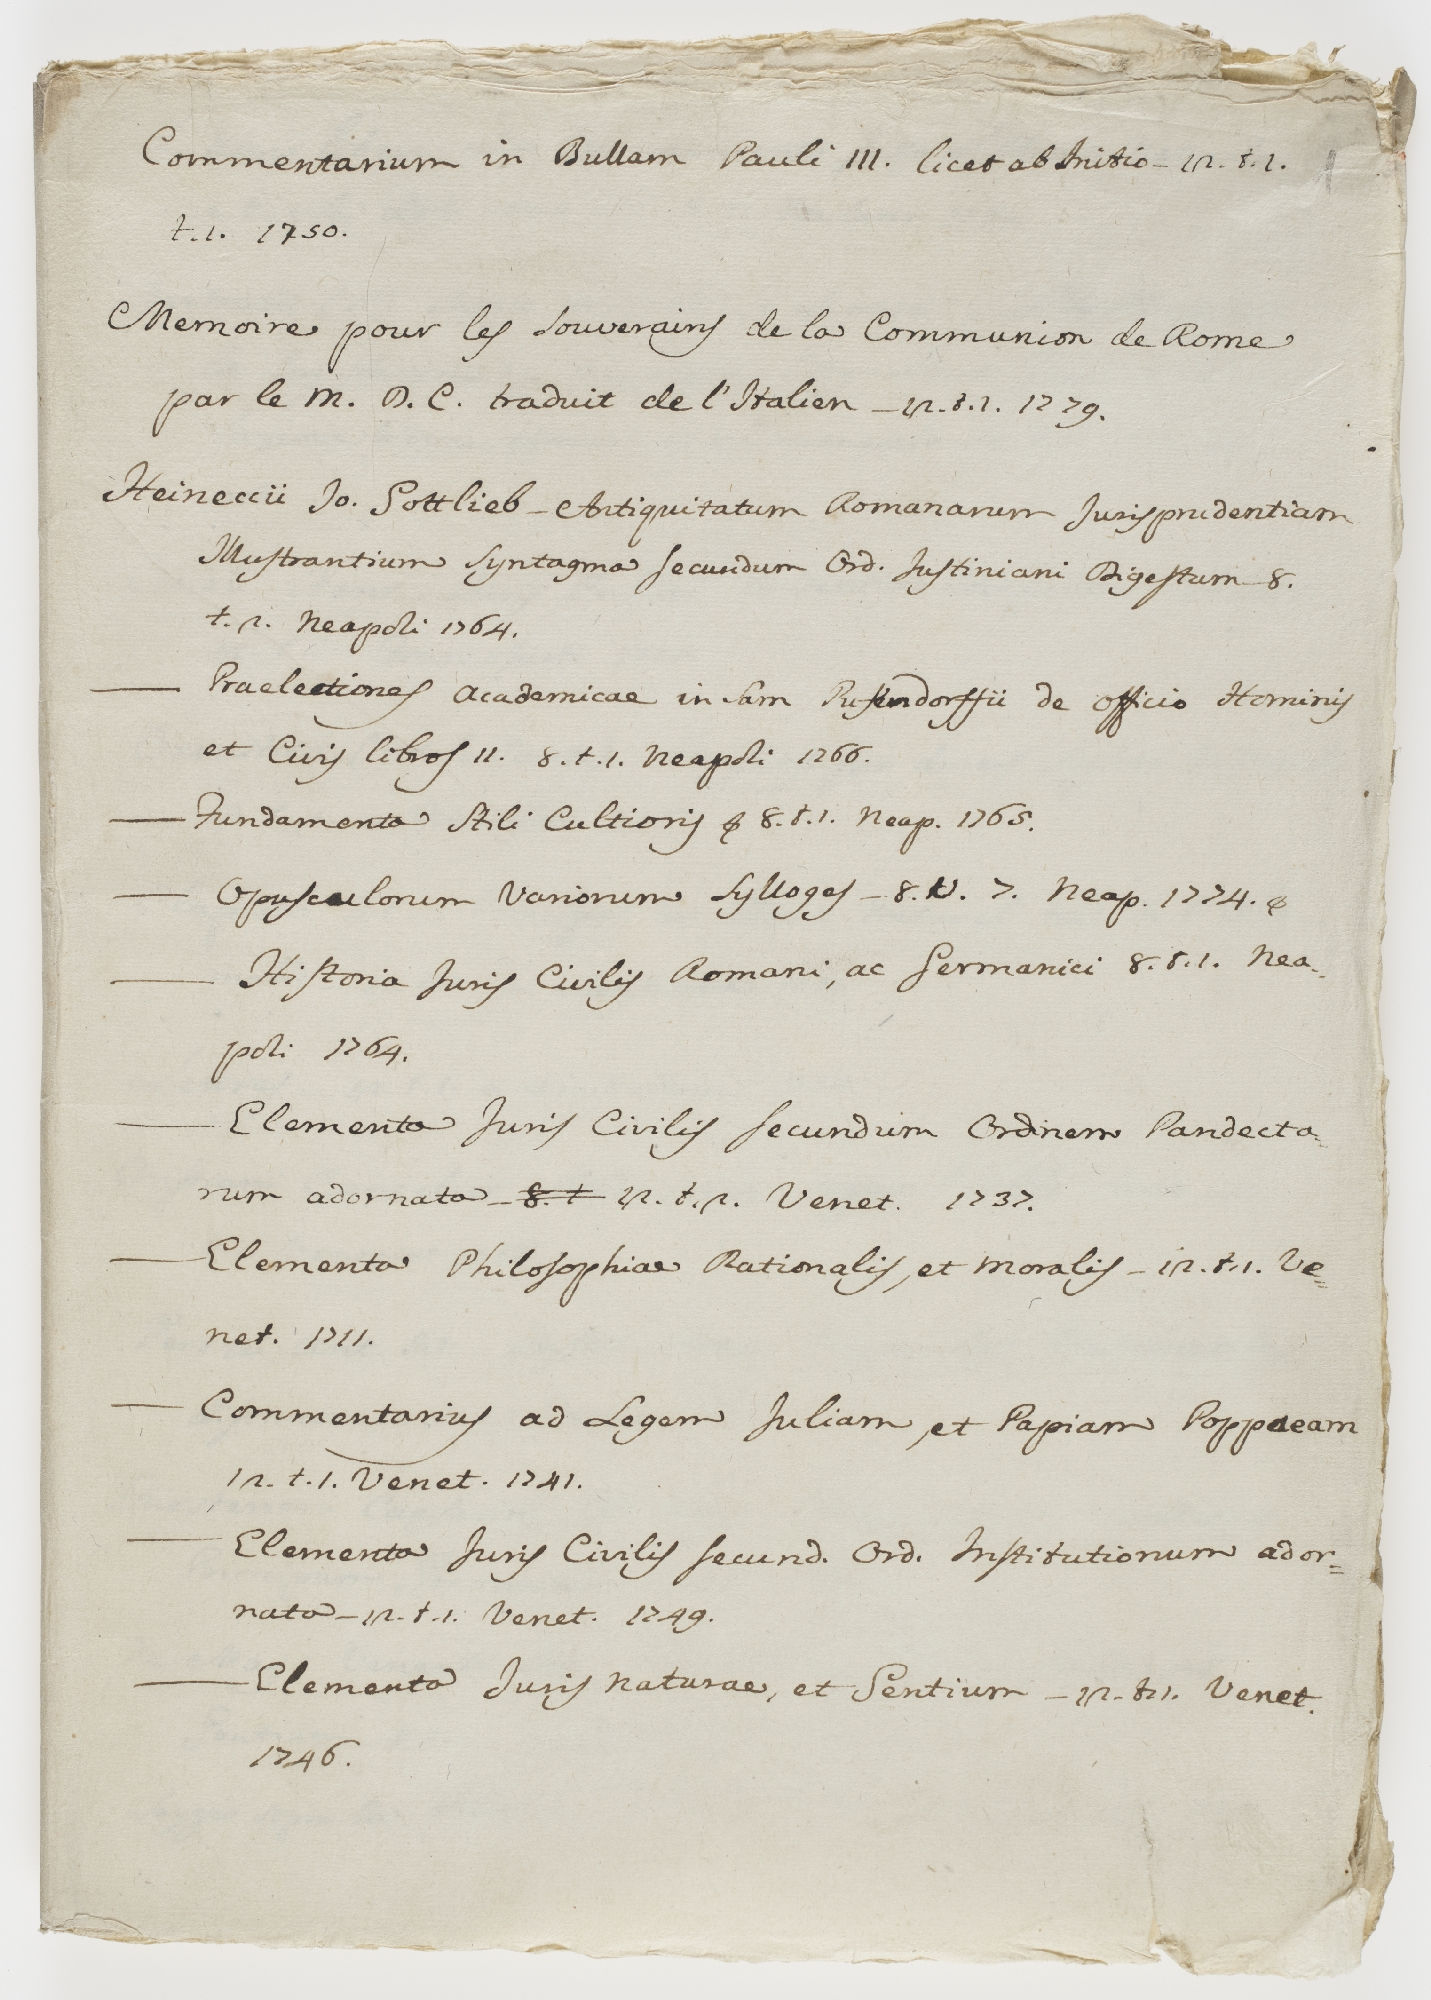 Commentarium in Bullam Pauli III. licet ab Initio - 12. t. 1.
t. 1. 1750.
Memoire pour les Souverains de la Communion de Rome
par le M. D. C. traduit de l'Italien - 12. t. 1. 1779.
Heineccii Jo. Gottlieb - Antiquitatum Romanarum Jurisprudentiam
Illustrantium Syntagma secundum Ord. Justiniani Digestum - 8.
t. 2. Neapoli 1764.
— Praelectiones academicae in Sam Pufendorffii de officio Hominis
et Civis libros II. 8. t. 1. Neapoli 1766.
— Fundamenta Stili Cultioris 8. t. 1. Neap. 1765.
— Opusculorum Variorum Sylloges - 8. 7. Neap. 1774.
— Historia Juris Civilis Romani, ac Germanici 8. t. 1. Nea-
poli 1764.
— Elementa Juris Civilis secundum Ordinem Pandecta-
rum adornata - 8. t 12. t. 2. Venet. 1737.
— Elementa Philosophiae Rationalis, et Moralis - 12. t. 1. Ve=
net. 1711.
— Commentarius ad Legem Juliam, et Papiam Poppaeam
12. t. 1. Venet. 1741.
— Elementa Juris Civilis secund. Ord. Institutionum ador=
nata - 12. t. 1. Venet. 1749.
— Elementa Juris naturae, et Gentium - 12. t. 1. Venet.
1746.